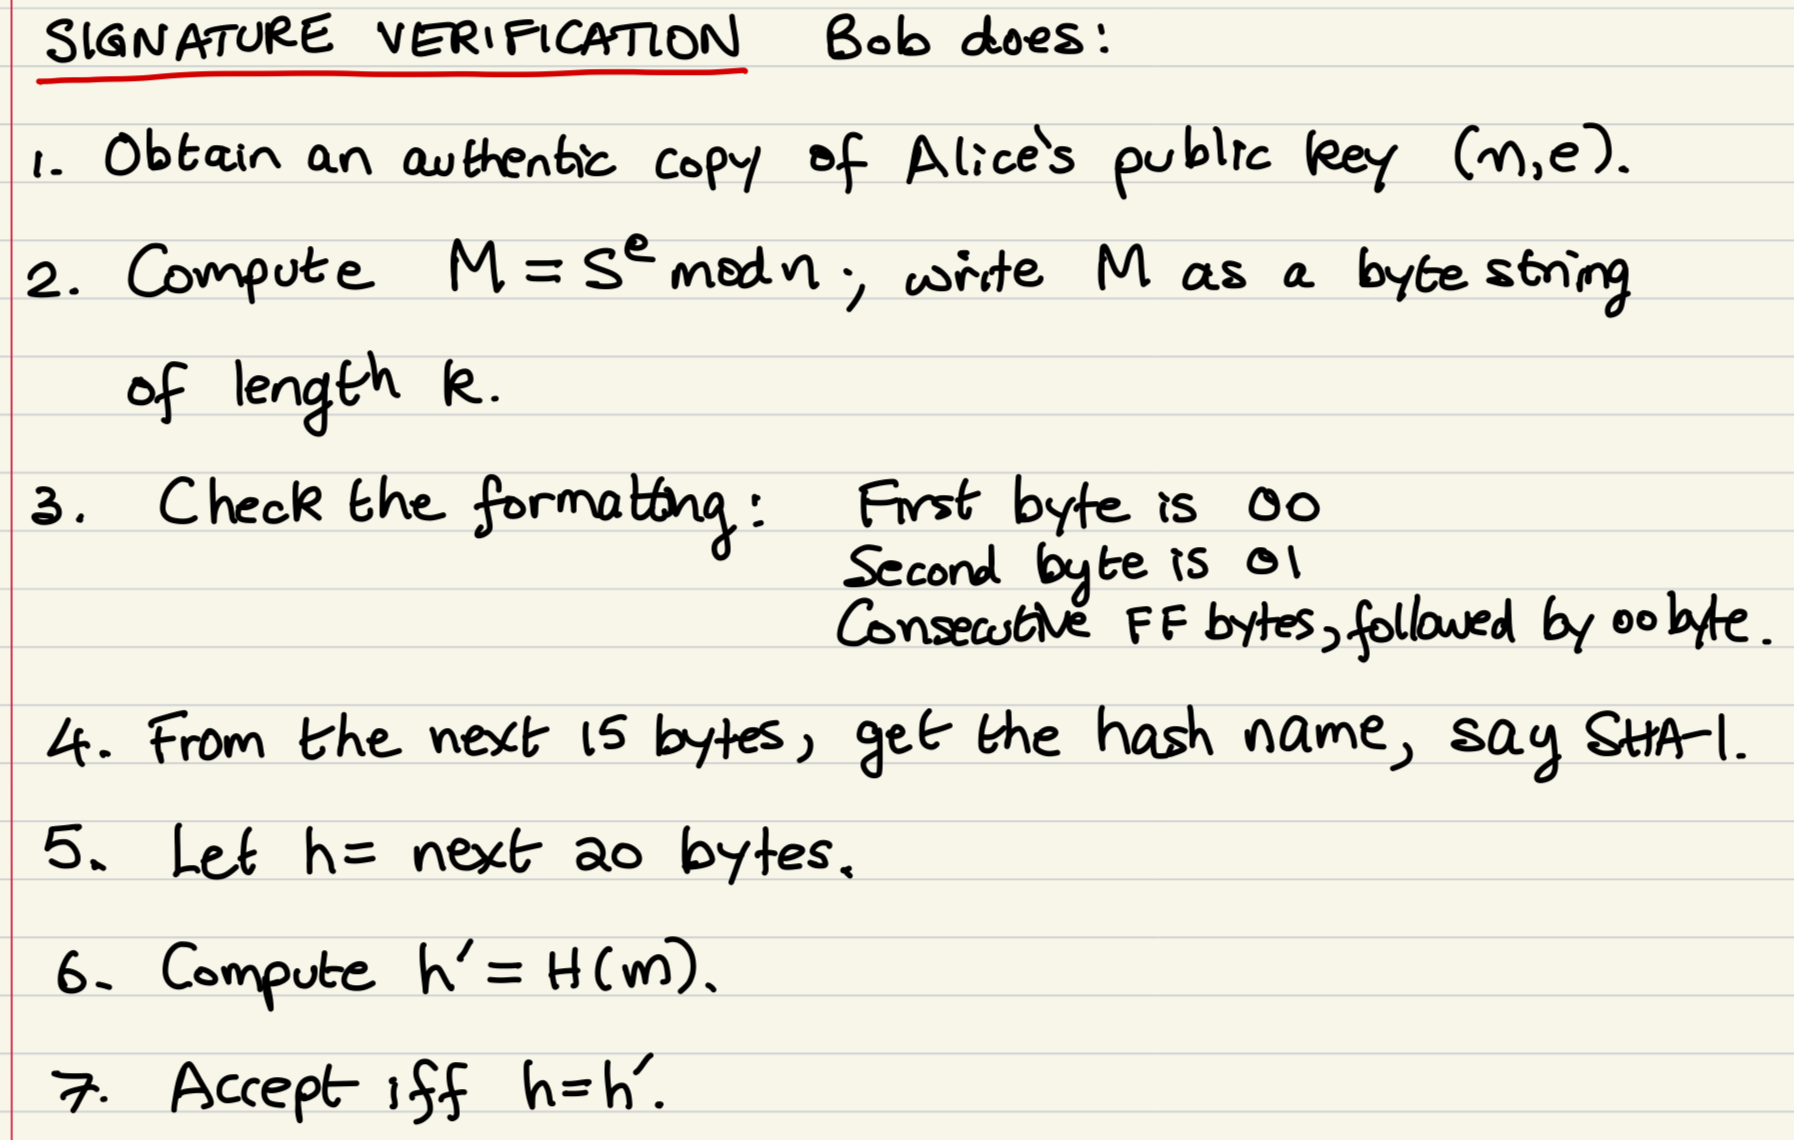 SIGNATURE VERIFICATION Bob does:
1. Obtain an authentic copy of Alice's public key (n,e).
2. Compute M = s^e mod n; write M as a byte string
of length k.
3. Check the formatting: First byte is 00
Second byte is 01
Consecutive FF bytes, followed by 00 byte.
4. From the next 15 bytes, get the hash name, say SHA-1.
5. Let h= next 20 bytes.
6. Compute h' = H(m).
7. Accept iff h=h'.